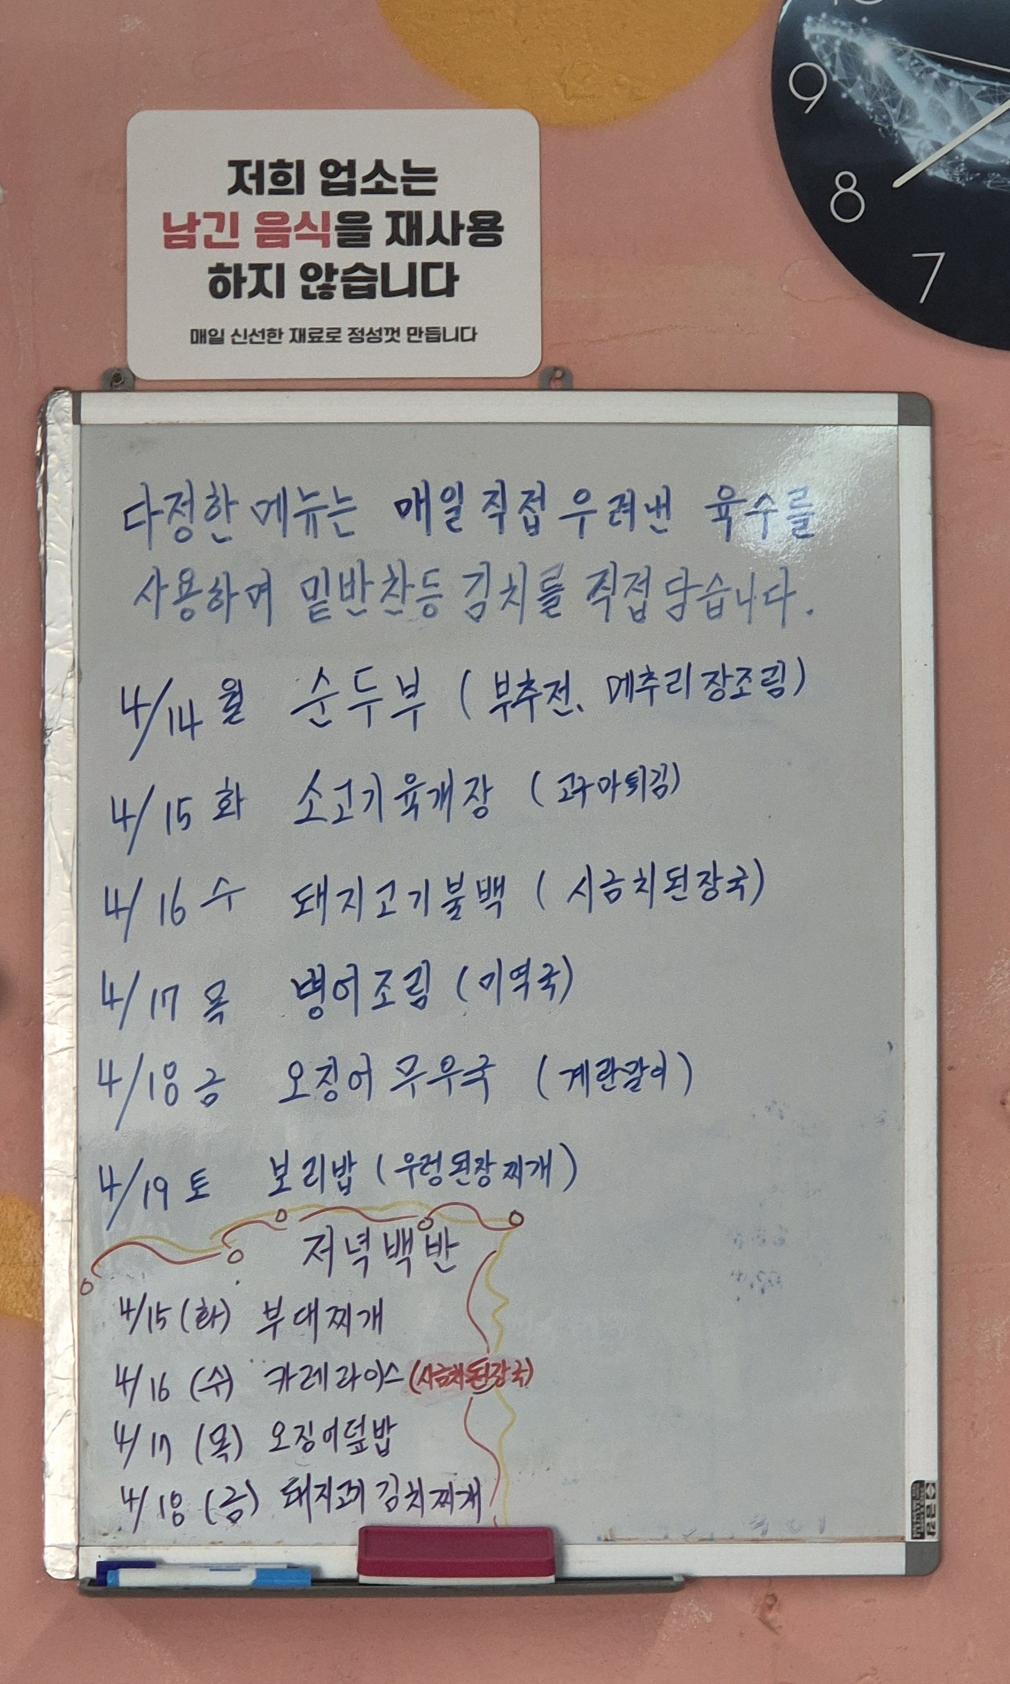 저희 업소는
남긴 음식을 재사용
하지 않습니다
매일 신선한 재료로 정성껏 만듭니다
9
8
7
다정한 메뉴는 매일 직접 우려낸 육수를
사용하며 밑반찬등 김치를 직접 담습니다.
4/14 월 순두부 (부추전, 메추리장조림)
4/15 화 소고기육개장 (고구마튀김)
4/16 수 돼지고기불백 (시금치된장국)
4/17 목 병어조림 (미역국)
4/18 금 오징어무우국 (계란말이)
4/19 토 보리밥 (우렁된장찌개)
저녁백반
4/15 (화) 부대찌개
4/16 (수) 카레라이스 (시금치된장국)
4/17 (목) 오징어덮밥
4/18 (금) 돼지고기 김치찌개